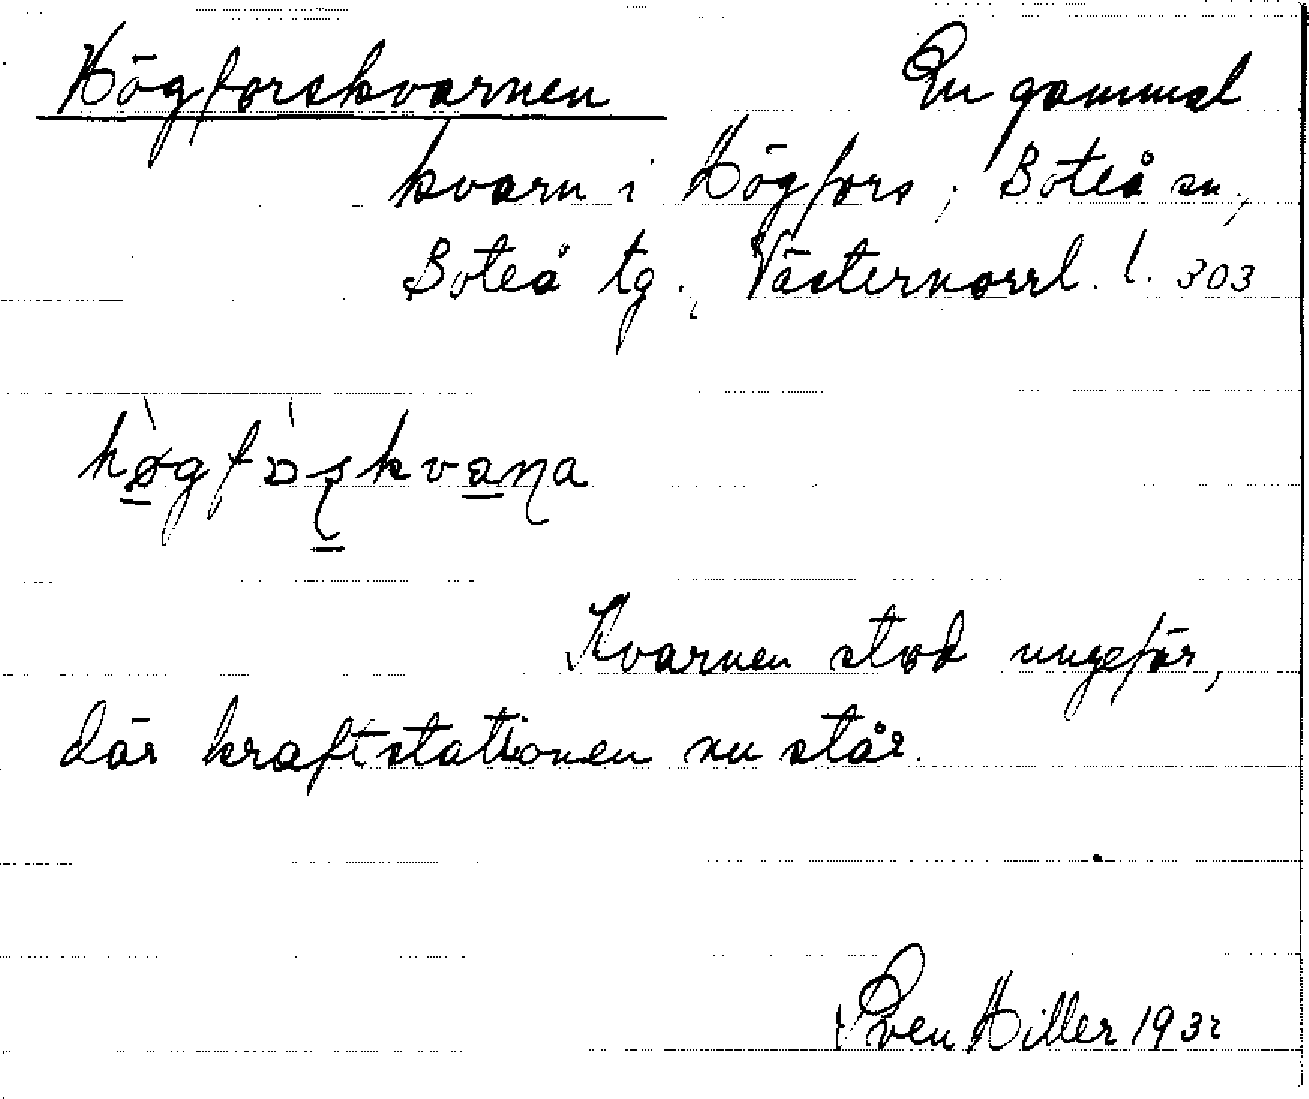 Högforskvarnen En gammal
kvarn i Högfors, Boteå sn,
Boteå tg., Västernorrl. l. 303
hø̀gfɔ̀ʂkvaɳa
Kvarnen stod ungefär,
där kraftstationen nu står.
Sven Hiller 1932